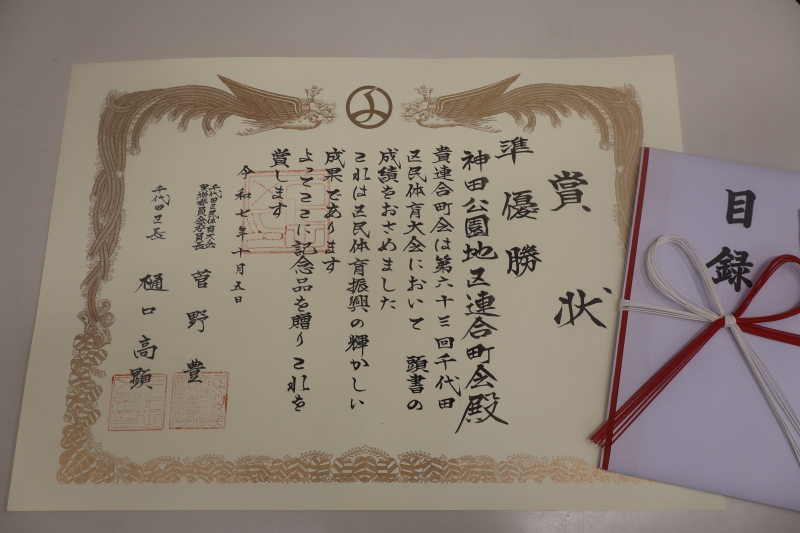 賞状
準優勝
神田公園地区連合町会殿
貴連合町会は第六十三回千代田
区民体育大会において 頭書の
成績をおさめました
これは区民体育振興の輝かしい
成果であります
よってここに記念品を贈りこれを
賞します
令和七年十月五日
千代田区民体育大会
実行委員会委員長
菅野豊
千代田区長
樋口高顕
目録